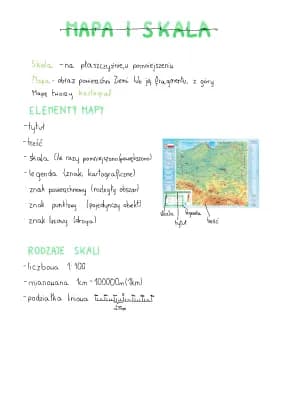 MAPA I SKALA
Skala - na płaszczyźnie, w pomniejszeniu
Mapa - obraz powierzchni Ziemi lub jej fragmentu z góry
Mapę tworzy kartograf
ELEMENTY MAPY
-tytuł
-treść
-skala (ile razy pomniejszono/powiększono)
-legenda (znaki kartograficzne)
znak powierzchniowy (rozległy obszar)
znak punktowy (pojedynczy obiekt)
znak liniowy (droga)
skala
legenda
tytuł
treść
RODZAJE SKALI
-liczbowa 1:100
-mianowana 1cm - 100000m (1km)
-podziałka liniowa